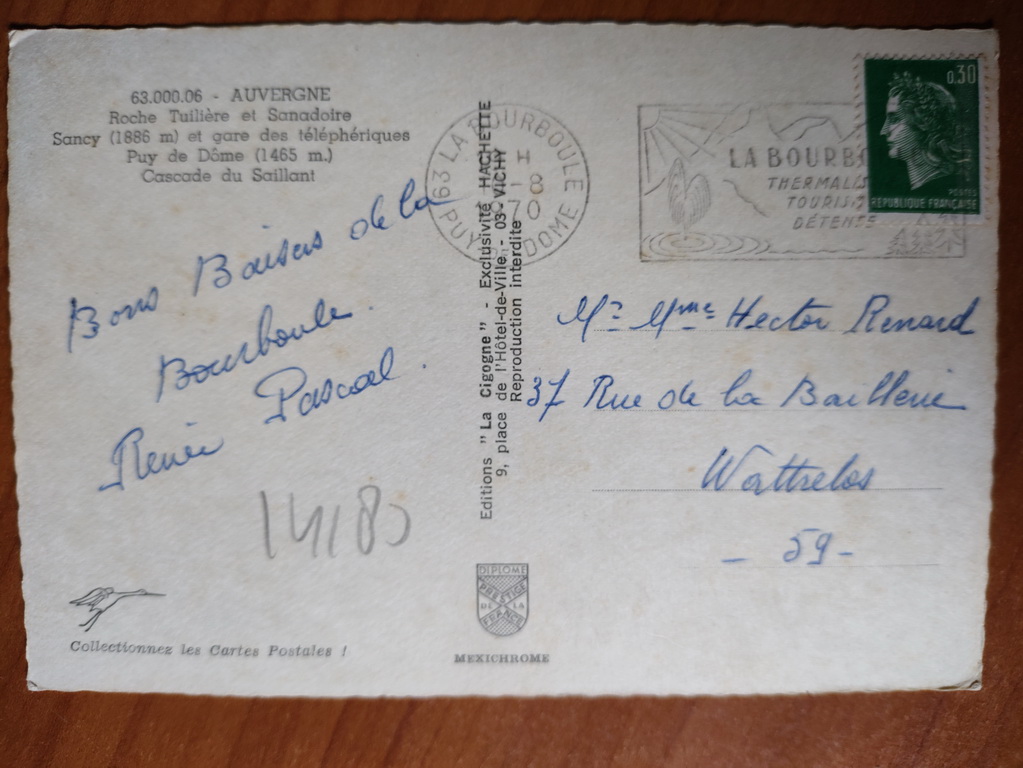 63.000.06 - AUVERGNE
Roche Tuilière et Sanadoire
Sancy (1886 m) et gare des téléphériques
Puy de Dôme (1465 m.)
Cascade du Saillant
Bons Baisers de la
Bourboule.
Renée Pascal.
Collectionnez les Cartes Postales !
Editions "La Cigogne" - Exclusivité HACHETTE
9, place de l'Hôtel-de-Ville - 03-VICHY
Reproduction interdite
DIPLOME
PRESTIGE
DE LA
FRANCE
MEXICHROME
63 LA BOURBOULE
H
-8
70
PUY DOME
LA BOURBO
THERMALIS
TOURIS
DÉTENSE
0,30
POSTES
REPUBLIQUE FRANÇAISE
Mr Mme Hector Renard
37 Rue de la Baillerie
Wattrelos
- 59 -